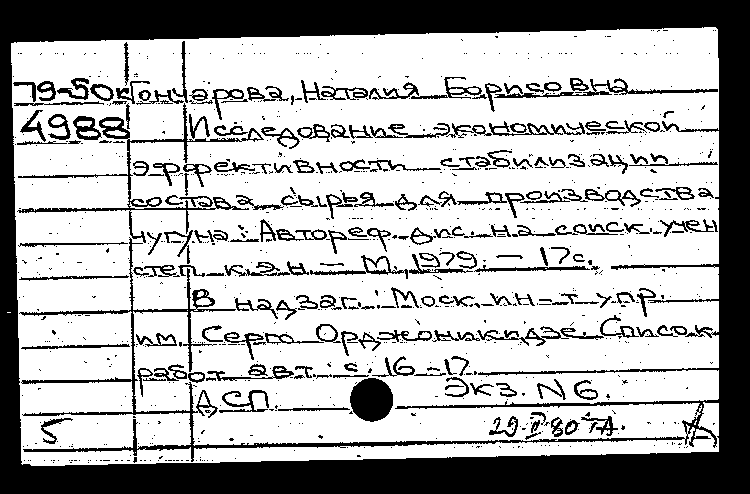 79-50к Гончарова, Наталия Борисовна
4988 Исследование экономической
эффективности стабилизации
состава сырья для производства
чугуна: Автореф. дис. на соиск. учен
степ к.э.н. — М., 1979. — 17с.
В надзаг.: Моск. ин-т упр.
им. Серго Орджоникидзе. Список
работ авт.: с. 16-17
АСП. Экз. N6.
5 29.II 80